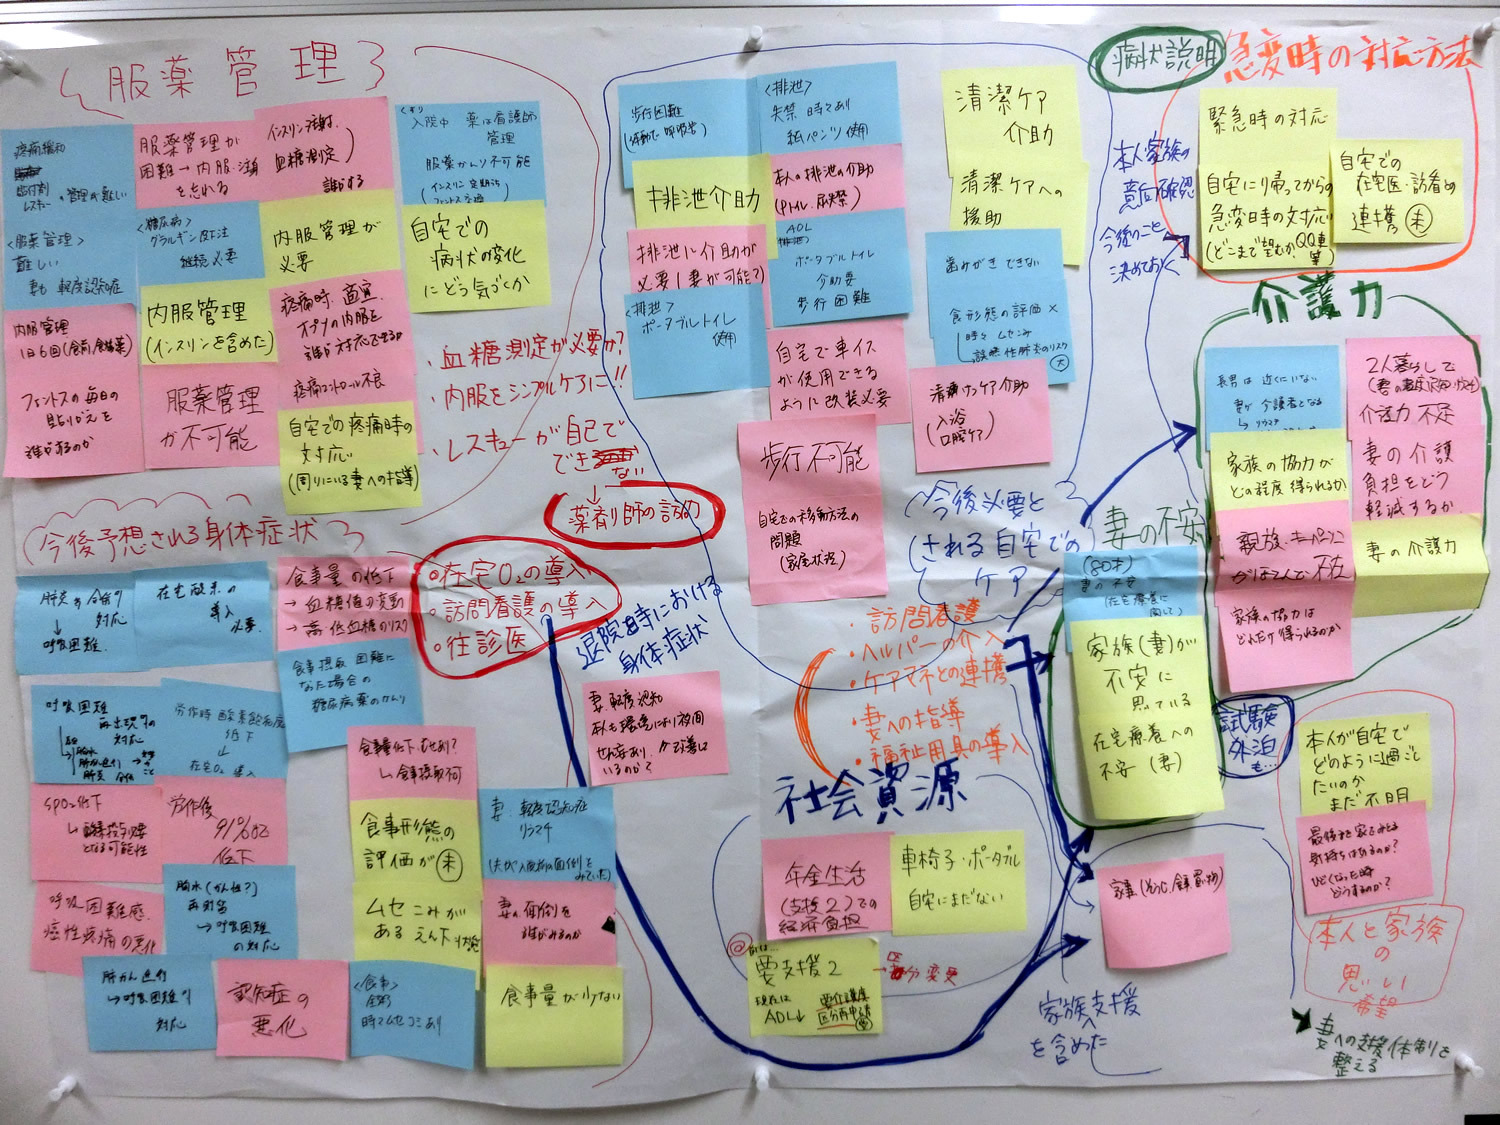 服薬管理
疼痛緩和
貼付剤
レスキューの管理が難しい
<服薬管理>
難しい
妻も軽度認知症
服薬管理が
困難→内服、注射
を忘れる
インスリン注射、
血糖測定
誰がする
<くすり>
入院中 薬は看護師
管理
服薬かんり不可能
(インスリン定期うち
フェントス交換)
<糖尿病>
グラルギン皮下注
継続必要
内服管理が
必要
自宅での
病状の変化
にどう気づくか
内服管理
1日6回(食前,食後薬)
内服管理
(インスリンを含めた)
疼痛時、適宜、
オプソの内服を
誰が対応できるか
フェントスの毎日の
貼りかえを
誰がするのか
服薬管理
が不可能
疼痛コントロール不良
自宅での疼痛時の
対応
(周りにいる妻への指導)
・血糖測定が必要か?
・内服をシンプルケアに!!
・レスキューが自己で
でき
ない
薬剤師の訪問
今後予想される身体症状
肺炎の合併の
対応
↓
呼吸困難
在宅酸素の
導入
必要
食事量の低下
→血糖値の変動
→高・低血糖のリスク
・在宅O₂の導入
・訪問看護の導入
・往診医
食事摂取困難に
なった場合の
糖尿病薬のかんり
呼吸困難
再出現時の
対応
労作時 酸素飽和度
低下
↓
在宅O₂導入
SPO₂低下
酸素投与必要
となる可能性
労作後
91%台
低下
食事量低下、むせあり?
↳食事摂取不可
食事形態の
評価が未
妻、軽度認知症
リウマチ
呼吸困難感、
癌性疼痛の悪化
胸水(がん性?)
再貯留
→呼吸困難
の対応
ムセこみが
ある えん下状態
妻の面倒を
誰がみるのか
肺がん進行
→呼吸困難の
対応
認知症の
悪化
<食事>
全粥
時々ムセコミあり
食事量が少ない
歩行困難
<排泄>
失禁 時々あり
紙パンツ使用
清潔ケア
介助
排泄介助
本人の排泄の介助
(Pトイレ、尿失禁)
清潔ケアへの
援助
排泄に介助が
必要(妻が可能?)
ADL
排泄)
ポータブルトイレ
介助要
歩行困難
歯みがきできない
食形態の評価×
時々ムセこみ
誤嚥性肺炎のリスク
大
<排泄>
ポータブルトイレ
使用
自宅で車イス
が使用できる
ように改装必要
入浴
口腔ケア
歩行不可能
自宅での移動方法の
問題
(家屋状況)
今後必要と
される自宅での
ケア
退院時における
身体症状
・訪問看護
・ヘルパーの介入
・ケアマネとの連携
・妻への指導
・福祉用具の導入
社会資源
年金生活
(支援2)での
経済負担
車椅子・ポータブル
自宅にまだない
要支援2
現在は
ADL↓
→区分変更
病状説明
急変時の対応方法
本人家族の
意向確認
今後のこと
決めておく
緊急時の対応
自宅に帰ってからの
急変時の対応
(どこまで望むか、QQ車
等)
自宅での
在宅医・訪看との
連携 未
介護力
長男は近くにいない
妻が介護者となる
リウマチ
2人暮らしで
介護力不足
家族の協力が
どの程度得られるか
妻の介護
負担をどう
軽減するか
がほとんど不在
妻の介護力
家族の協力は
どれだけ得られるのか
妻の不安
(80才)
妻の不安
(在宅療養に
関して)
家族(妻)が
不安に
思っている
在宅療養への
不安(妻)
試験
外泊
も…
本人が自宅で
どのように過ごし
たいのか
まだ不明
最後まで家でみとる
気持ちはあるのか?
ひどくなった時
どうするのか?
本人と家族
の
思い
希望
家族支援
を含めた
妻への支援体制を
整える